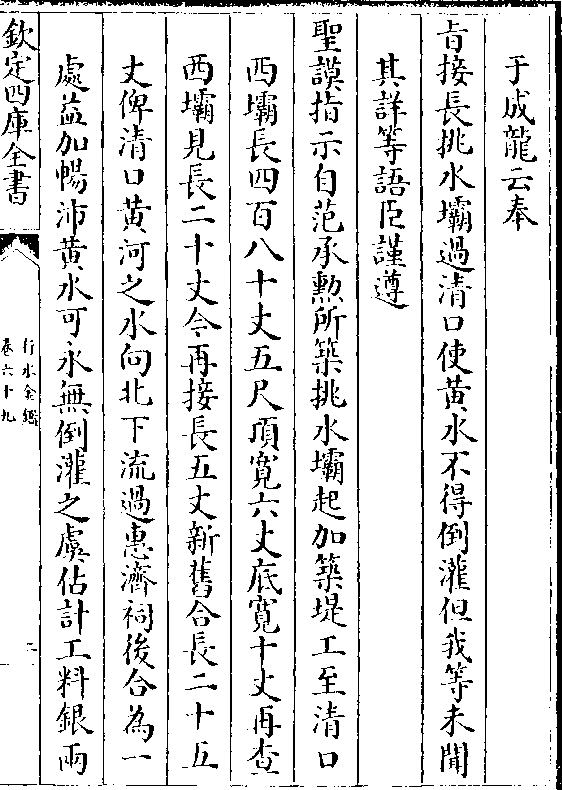 于成龍云奉
旨接長挑水壩過清口使黄水不得倒灌但我等未聞
其詳等語臣謹遵
聖謨指示自范承勲所築挑水壩起加築堤工至清口
西壩長四百八十丈五尺頂寛六丈底寛十丈再查
西壩見長二十丈今再接長五丈新舊合長二十五
丈俾清口黄河之水向北下流過惠濟祠後合為一
處益加暢沛黄水可永無倒灌之虞估計工料銀兩
欽定四庫全書
行水金鑑
卷六十九
二